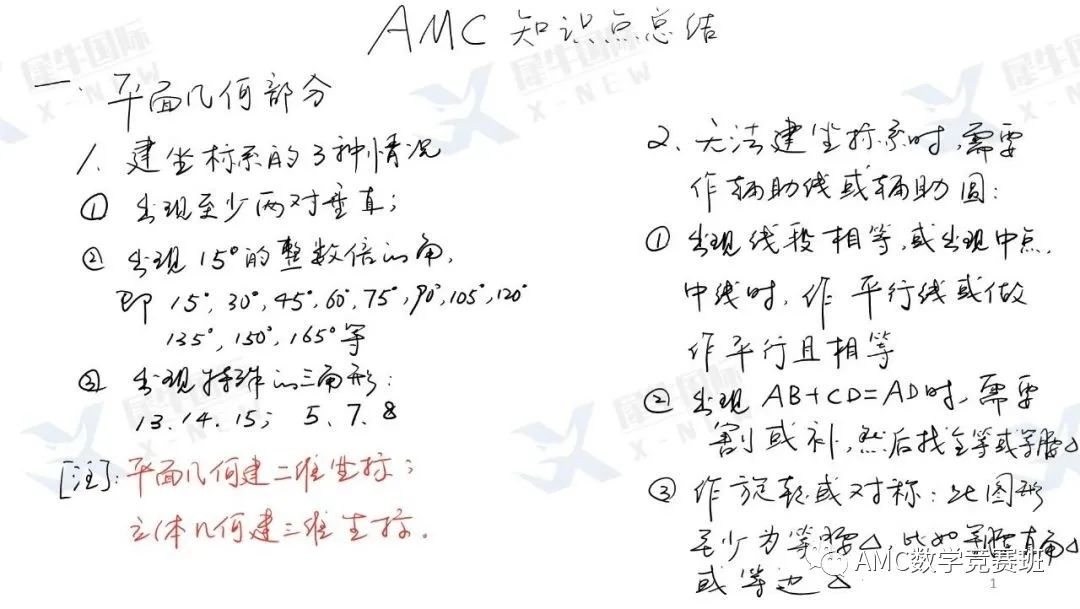 AMC 知识点总结
一. 平面几何部分
1. 建坐标系的3种情况
① 出现至少两对垂直;
② 出现15°的整数倍的角,
即 15°, 30°, 45°, 60°, 75°, 90°, 105°, 120°
135°, 150°, 165°等
③ 出现特殊的三角形:
13. 14. 15; 5. 7. 8
[注]: 平面几何建二维坐标;
立体几何建三维坐标.
2. 无法建坐标系时, 需要
作辅助线或辅助圆:
① 出现线段相等, 或出现中点.
中线时, 作平行线或做
作平行且相等
② 出现 AB+CD=AD时, 需要
割或补, 然后找全等或等腰△
③ 作旋转或对称: 此图形
至少为等腰△, 比如等腰直角△
或等边△
AMC数学竞赛班
1
犀牛国际
X-NEW